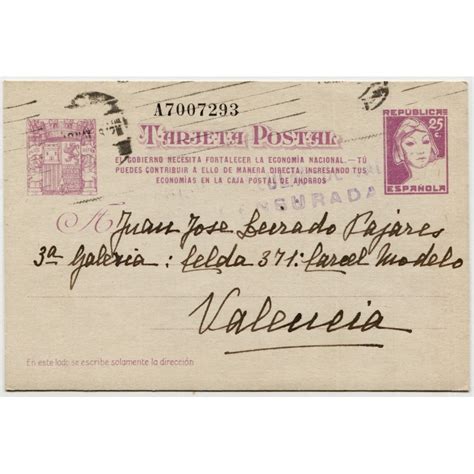 A7007293
TARJETA POSTAL
EL GOBIERNO NECESITA FORTALECER LA ECONOMÍA NACIONAL.—TÚ
PUEDES CONTRIBUIR A ELLO DE MANERA DIRECTA, INGRESANDO TUS
ECONOMÍAS EN LA CAJA POSTAL DE AHORROS
REPÚBLICA
25
ESPAÑOLA
A Juan Jose Pajares
3ª Galeria: Celda 371: Carcel Modelo
Valencia
En este lado se escribe solamente la dirección